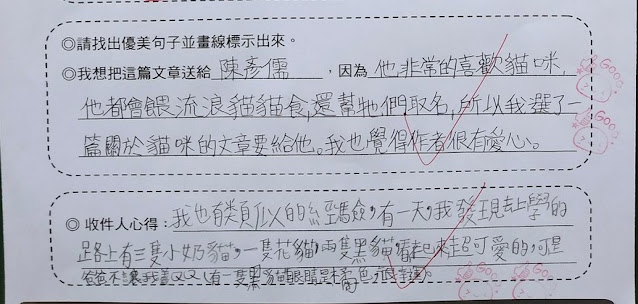 ◎請找出優美句子並畫線標示出來。
◎我想把這篇文章送給 陳彥儒 ，因為 他非常的喜歡貓咪，
他都會餵流浪貓貓食，還幫牠們取名，所以我選了一
篇關於貓咪的文章要給他。我也覺得作者很有愛心。
GOOD
GOOD
◎ 收件人心得：我也有類似的經驗，有一天，我發現去上學的
路上有三隻小奶貓，一隻花貓，兩隻黑貓，看起來超可愛的，可是
爸爸不讓我養ㄡㄡ（有一隻黑貓眼睛是橘色，很幸運）。
GOOD GOOD